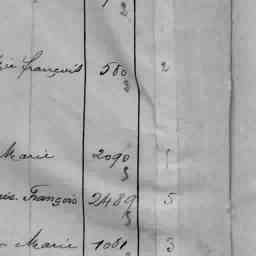 2
françois 560 2
2
Marie 2090
3
François 2489 5
3
Marie 1081 3